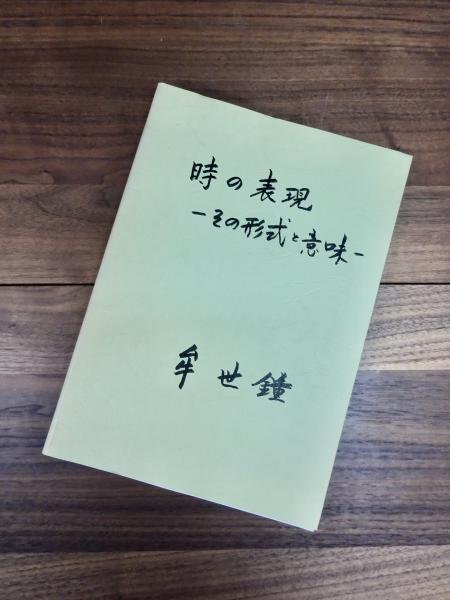 時の表現
－その形式と意味－
牟世鐘